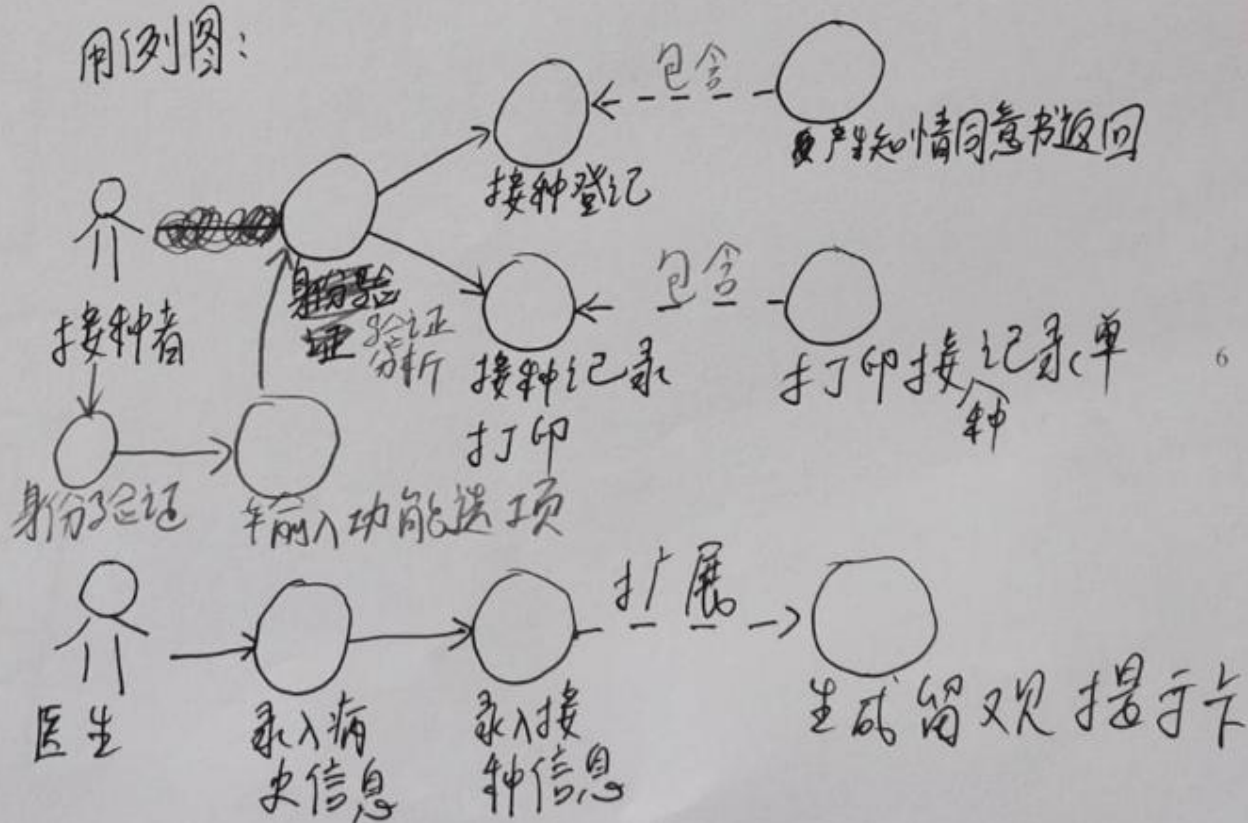 用例图:
包含
产生知情同意书返回
接种登记
接种者
验证
分析
包含
接种记录
打印
打印接种记录单
6
身份验证
输入功能选项
扩展
医生
录入病
史信息
录入接
种信息
生成留观提示卡